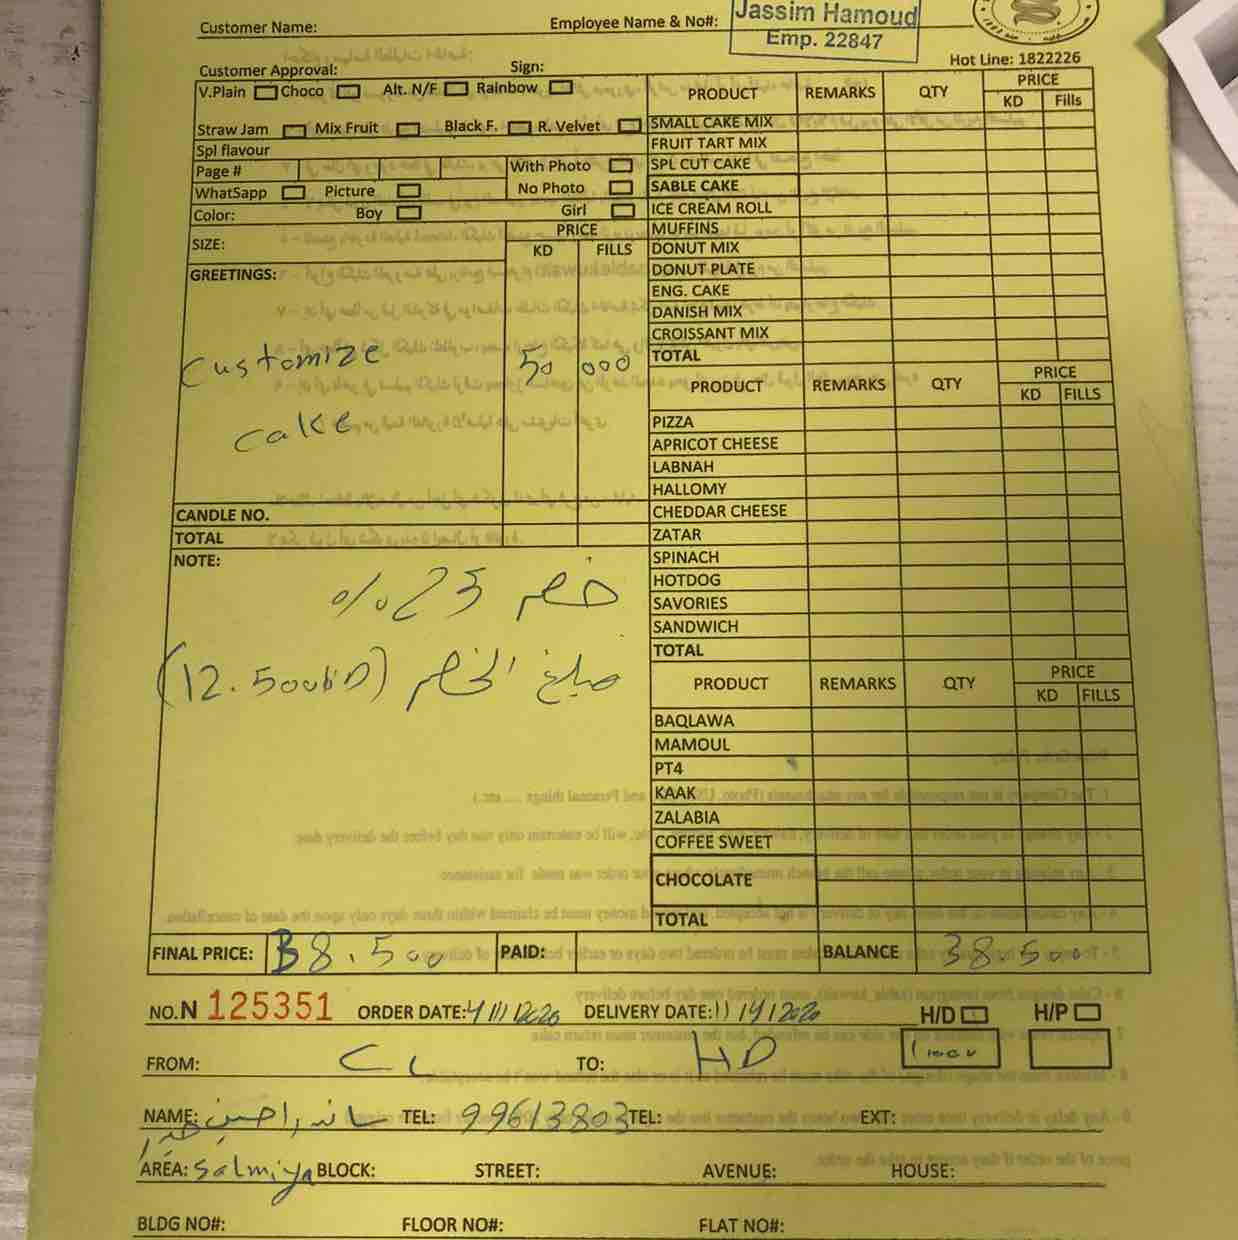 Customer Name: Employee Name & No#: Jassim Hamoud
Emp. 22847
Customer Approval: Sign: Hot Line: 1822226
V.Plain Choco Alt. N/F Rainbow
Straw Jam Mix Fruit Black F. R. Velvet
Spl flavour
Page # With Photo
WhatSapp Picture No Photo
Color: Boy Girl
SIZE: PRICE
KD FILLS
GREETINGS:
Customize 50 000
cake
CANDLE NO.
TOTAL
NOTE:
خصم 25 %
مبلغ الخصم (12.500KD)
PRODUCT REMARKS QTY PRICE
KD Fills
SMALL CAKE MIX
FRUIT TART MIX
SPL CUT CAKE
SABLE CAKE
ICE CREAM ROLL
MUFFINS
DONUT MIX
DONUT PLATE
ENG. CAKE
DANISH MIX
CROISSANT MIX
TOTAL
PRODUCT REMARKS QTY PRICE
KD FILLS
PIZZA
APRICOT CHEESE
LABNAH
HALLOMY
CHEDDAR CHEESE
ZATAR
SPINACH
HOTDOG
SAVORIES
SANDWICH
TOTAL
PRODUCT REMARKS QTY PRICE
KD FILLS
BAQLAWA
MAMOUL
PT4
KAAK
ZALABIA
COFFEE SWEET
CHOCOLATE
TOTAL
FINAL PRICE: 38.500 PAID: BALANCE 38.500
NO.N 125351 ORDER DATE: 4/11/2020 DELIVERY DATE: H/D H/P
FROM: TO: HD
NAME: TEL: 99613803 TEL: EXT:
AREA: Salmiya BLOCK: STREET: AVENUE: HOUSE:
BLDG NO#: FLOOR NO#: FLAT NO#: